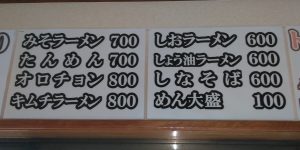 みそラーメン 700
たんめん 700
オロチョン 800
キムチラーメン 800
しおラーメン 600
しょう油ラーメン 600
しなそば 600
めん大盛 100